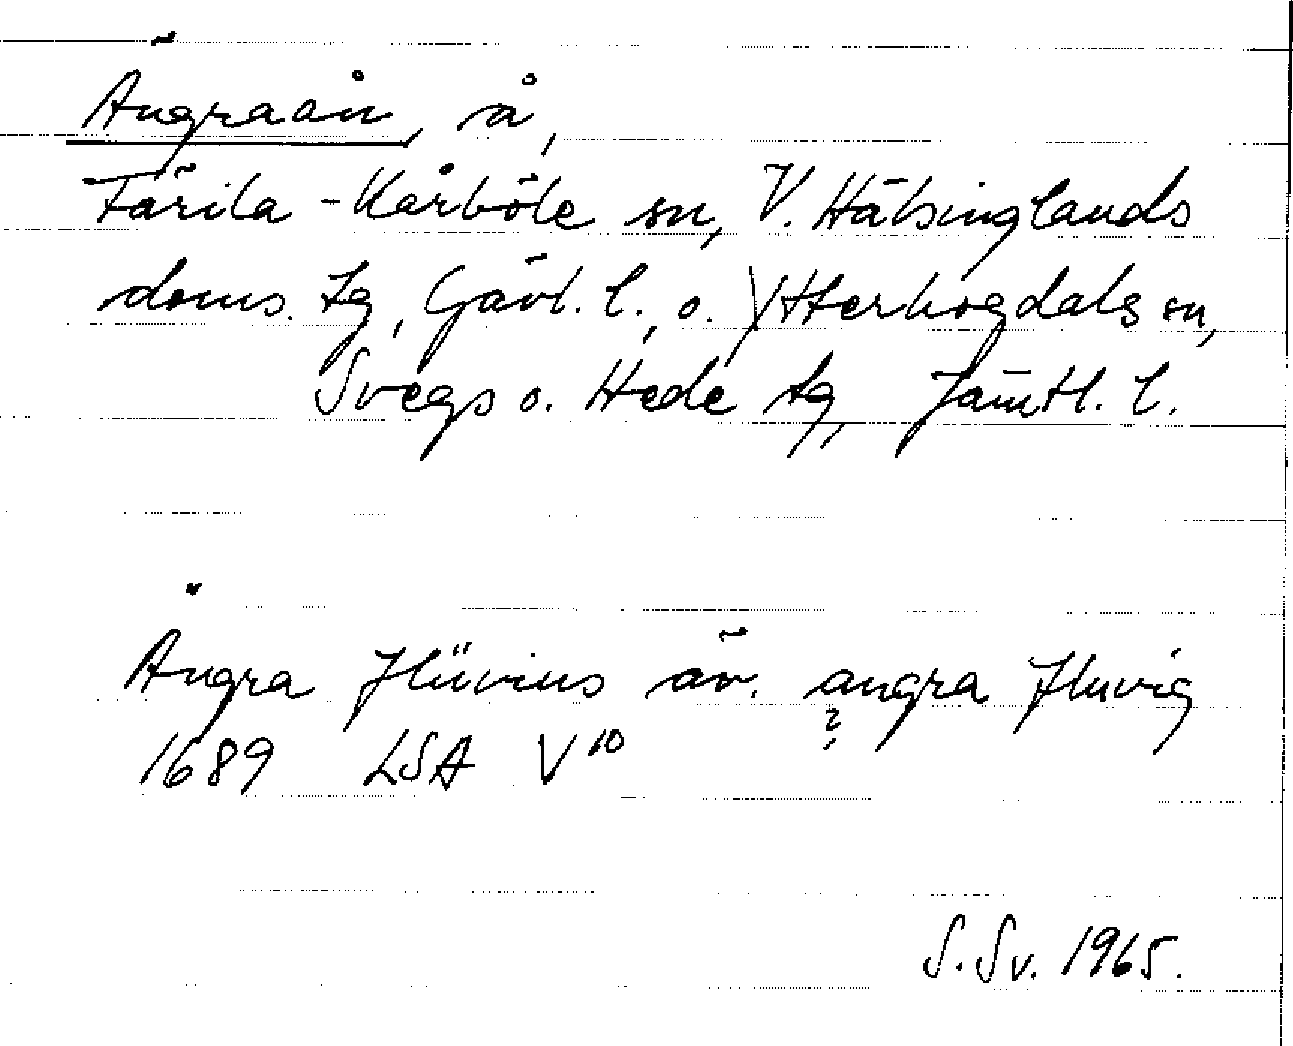 Ängraån, å,
Färila-Kårböle sn, V. Hälsinglands
doms. tg, Gävl. l., o. Ytterhogdals sn,
Svegs o. Hede tg, Jämtl. l.
Ängra Flüvius äv. angra fluvig
?
1689 LSA V 10
S. Sv. 1965.